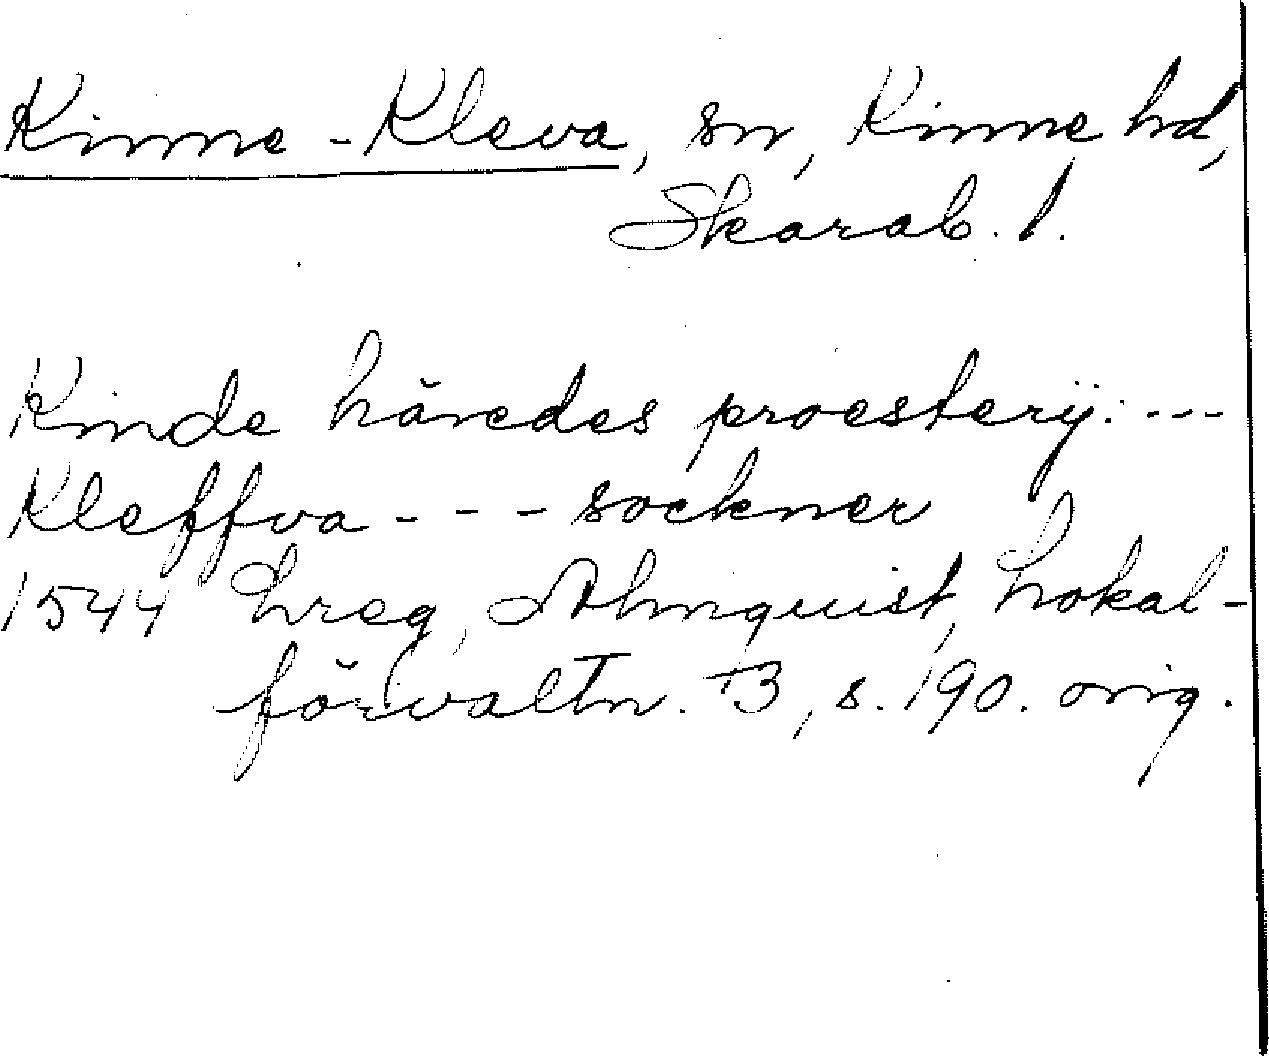 Kinne-Kleva, sn, Kinne hd,
Skarab. l.
Kinde häredes proesterij: ---
Kleffva --- sockner
1544 Lreg, Almquist, Lokal-
förvaltn. B, s. 190. orig.